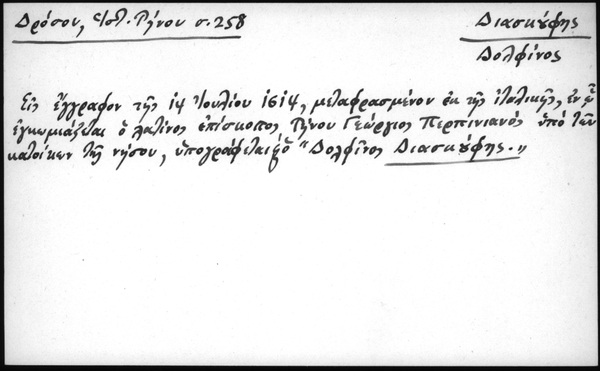 Δρόσου, Ἱστ. Τήνου σ. 258
Διασκύφης
Δολφίνος
Εἰς ἔγγραφον τῆς 14 Ἰουλίου 1614, μεταφρασμένον ἐκ τῆς ἰταλικῆς, ἐν ᾧ
ἐγκωμιάζεται ὁ λατίνος ἐπίσκοπος Τήνου Γεώργιος Περπινιανός ὑπό τῶν
κατοίκων τῆς νήσου, ὑπογράφεται ὁ "Δολφῖνος Διασκύφης."